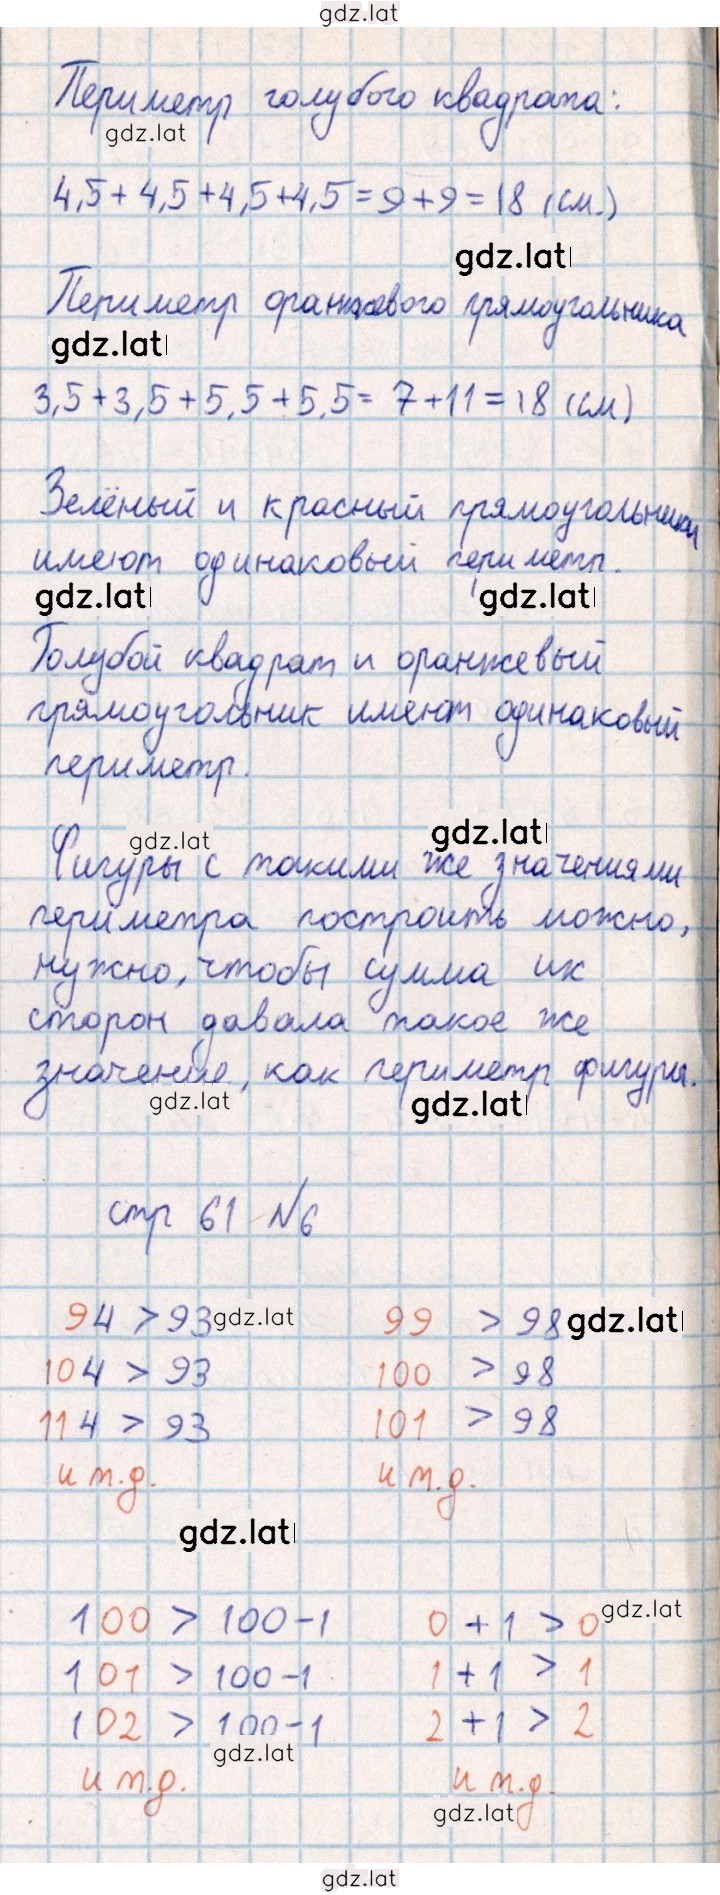 gdz.lat
Периметр голубого квадрата:
gdz.lat
4,5+4,5+4,5+4,5=9+9=18 (см.)
gdz.lat
Периметр оранжевого прямоугольника
gdz.lat
3,5+3,5+5,5+5,5= 7+11=18 (см)
Зелёный и красный прямоугольники
имеют одинаковый периметр.
gdz.lat gdz.lat
Голубой квадрат и оранжевый
прямоугольник имеют одинаковый
периметр.
gdz.lat gdz.lat
Фигуры с такими же значениями
периметра построить можно,
нужно, чтобы сумма их
сторон давала такое же
значение, как периметр фигуры.
gdz.lat gdz.lat
стр 61 №6
94 > 93 gdz.lat 99 > 98 gdz.lat
104 > 93 100 > 98
114 > 93 101 > 98
и т.д. и т.д.
gdz.lat
100 > 100-1 0+1 > 0 gdz.lat
101 > 100-1 1+1 > 1
102 > 100-1 2+1 > 2
gdz.lat
и т.д. и т.д.
gdz.lat
gdz.lat